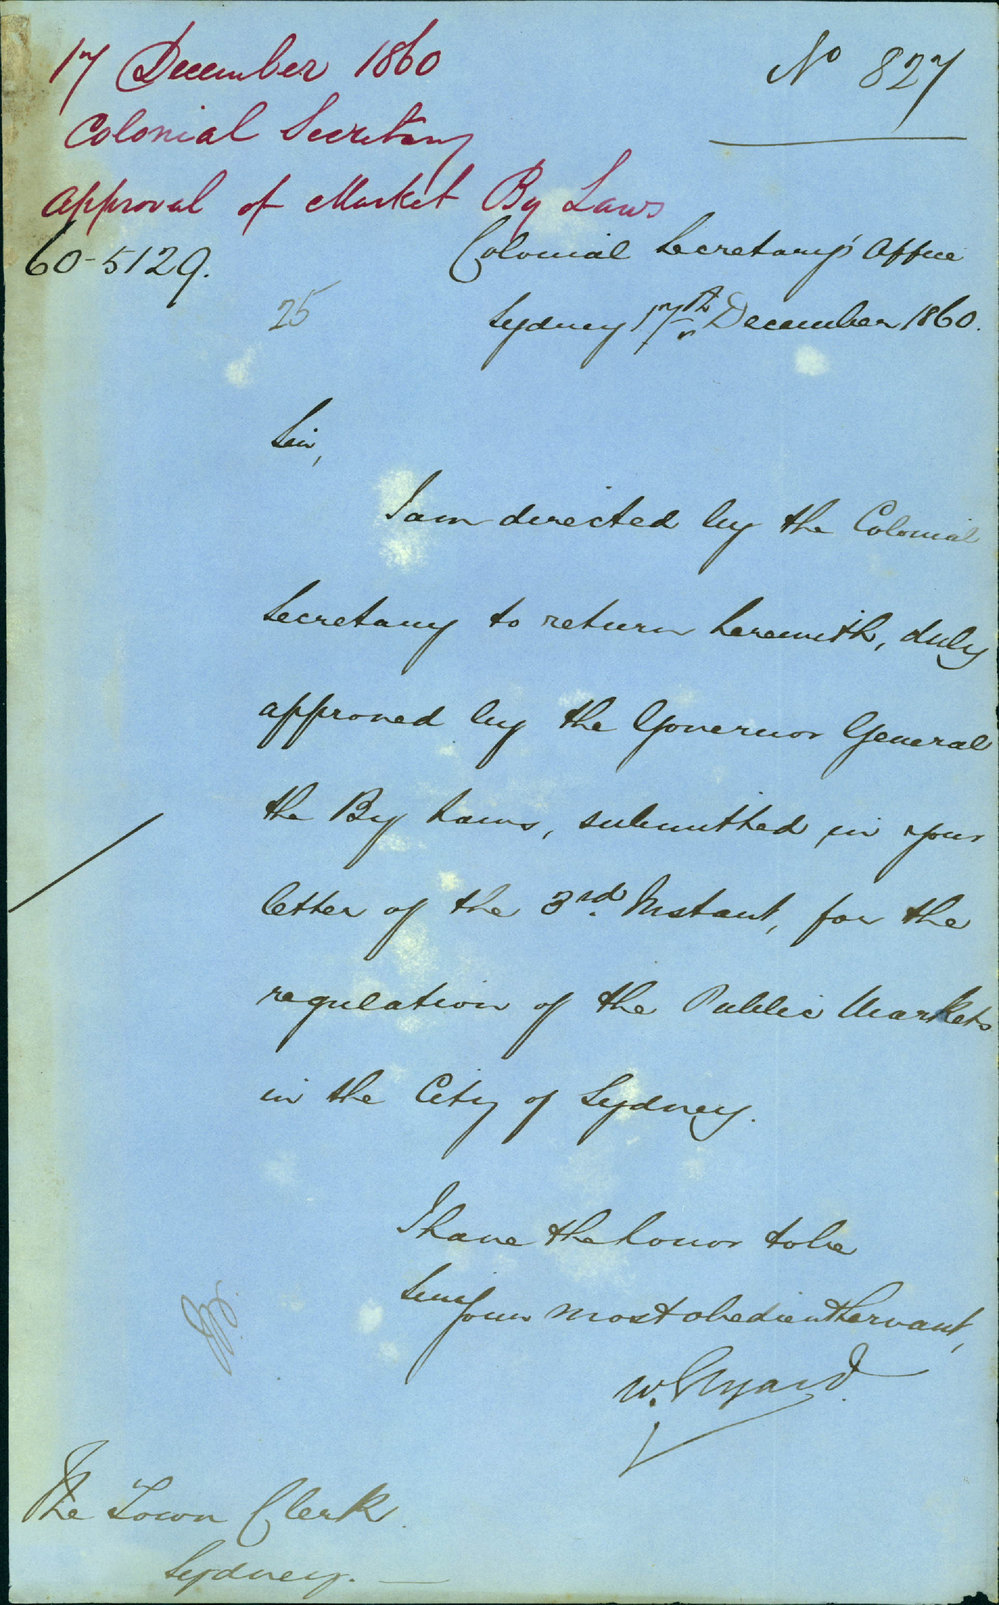 17 December 1860
No 827
Colonial Secretary
Approval of Market By Laws
60-5129.
Colonial Secretary's Office
25
Sydney 17th December 1860.
Sir,
I am directed by the Colonial
Secretary to return herewith, duly
approved by the Governor General
the By Laws, submitted in your
letter of the 3rd Instant, for the
regulation of the Public Markets
in the City of Sydney.
I have the honor to be
Sir
Your most obedient Servant,
W. Elyard
The Town Clerk
Sydney.